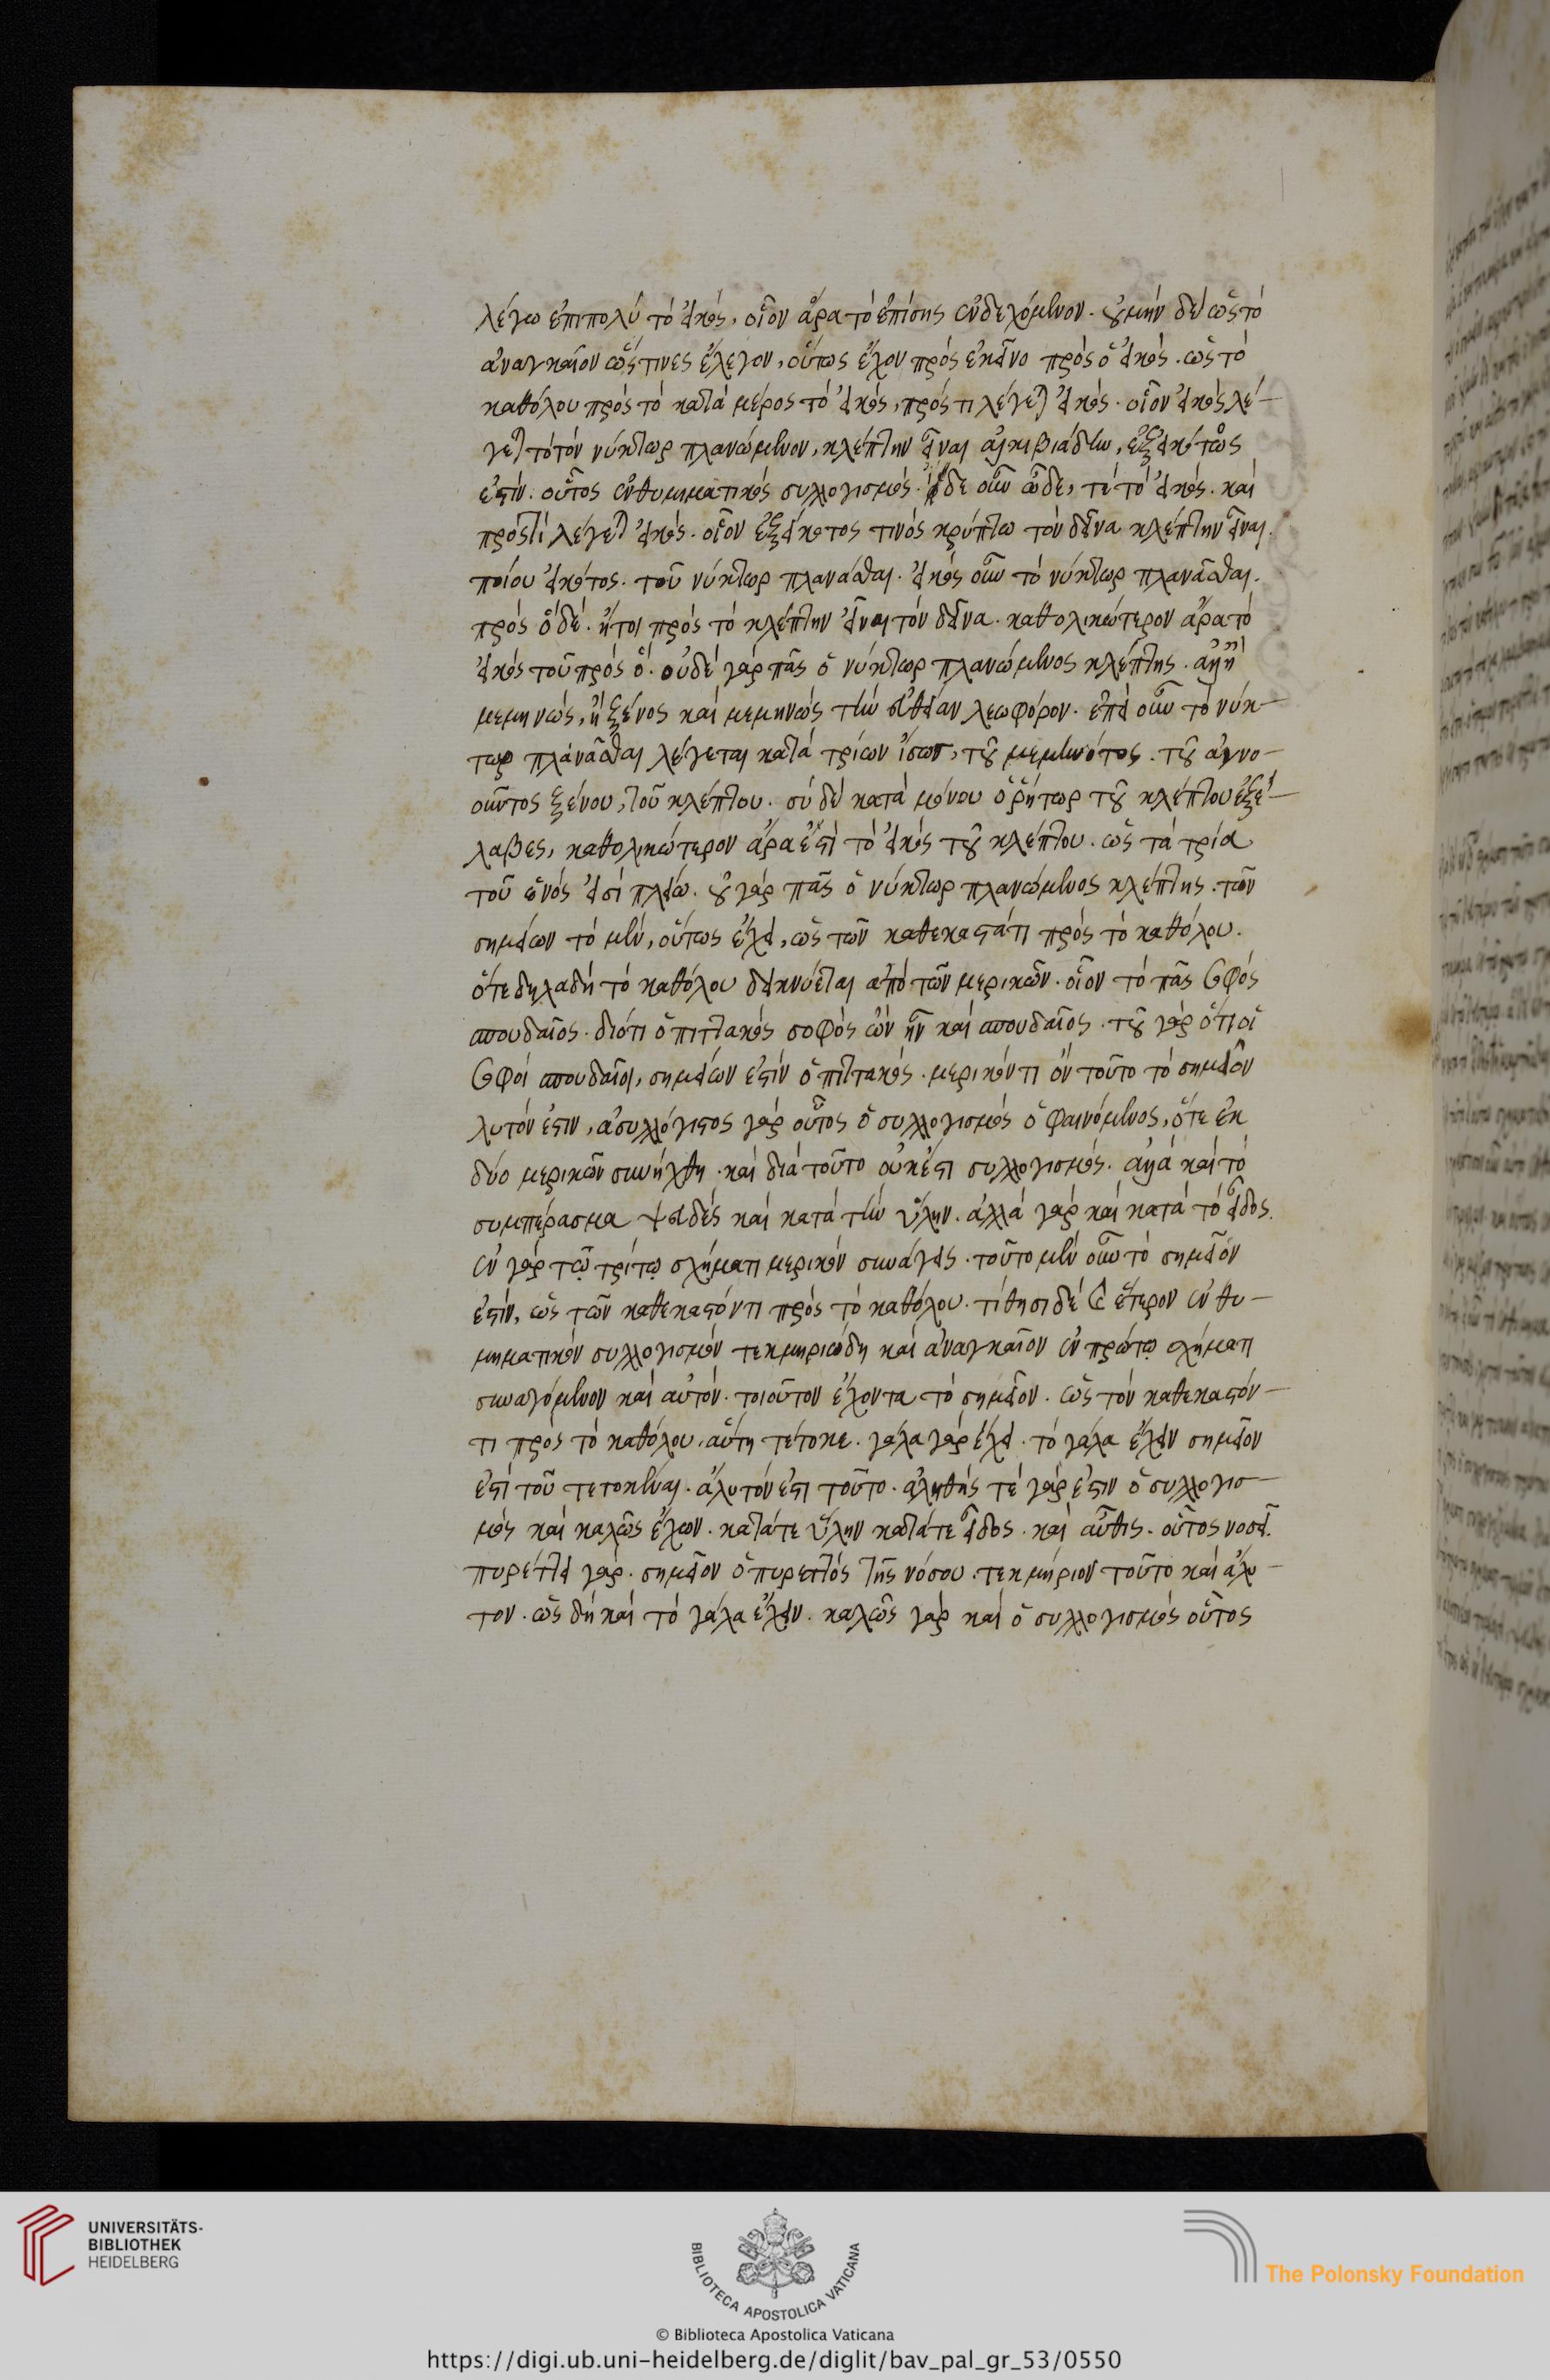 λέγω ἐπιπολὺ τὸ εἰκὸς, οἷον ἄρα τὸ ἐπίσης ἐνδεχόμενον. οὐ μὴν δὲ ὡς τὸ
ἀναγκαῖον ὥς τινες ἔλεγον, οὕτως ἔχον πρὸς ἐκεῖνο πρὸς ὃ εἰκὸς. ὡς τὸ
καθόλου πρὸς τὸ κατὰ μέρος τὸ εἰκὸς, πρός τι λέγεται εἰκὸς. οἷον εἰκὸς λέ-
γεται τὸ τὸν νύκτωρ πλανώμενον, κλέπτην εἶναι ἀλκιβιάδην, ἐξ εἰκότως
ἐστίν. οὗτος ἐνθυμηματικὸς συλλογισμὸς. δε οὖν ὧδε, τὲ τὸ εἰκὸς. καὶ
πρὸς τὶ λέγεται εἰκὸς. οἷον ἐξ εἰκότος τινὸς κρύπτω τὸν δεῖνα κλέπτην εἶναι.
ποίου εἰκότος. τοῦ νύκτωρ πλανᾶσθαι. εἰκὸς οὖν τὸ νύκτωρ πλανᾶσθαι.
πρὸς ὃ δέ. ἤτοι πρὸς τὸ κλέπτην εἶναι τὸν δεῖνα. καθολικώτερον ἄρα τὸ
εἰκὸς τοῦ πρὸς ὅ. οὐδὲ γὰρ πᾶς ὁ νύκτωρ πλανώμενος κλέπτης. ἀλλ' ἢ
μεμηνώς, ἢ ξένος καὶ μεμηνὼς τὴν εὐθεῖαν λεωφόρον. ἐπεὶ οὖν τὸ νύκ-
τωρ πλάνᾶσθαι λέγεται κατὰ τρίων ἴσως, τοῦ μεμηνότος. τοῦ ἀγνο-
οῦντος ξένου, τοῦ κλέπτου. σὺ δὲ κατὰ μόνου ὁ ῥήτωρ τοῦ κλέπτου ἐξέ-
λαβες, καθολικώτερον ἄρα ἐστὶ τὸ εἰκὸς τοῦ κλέπτου. ὡς τὰ τρία
τοῦ ἑνὸς εἰσὶ πλείω. οὐ γὰρ πᾶς ὁ νύκτωρ πλανώμενος κλέπτης. τῶν
σημείων τὸ μὲν, οὕτως ἔχει, ὡς τῶν καθεκαστά τι πρὸς τὸ καθόλου.
ὅτε δηλαδὴ τὸ καθόλου δεικνύεται ἀπὸ τῶν μερικῶν. οἷον τὸ πᾶς σοφὸς
σπουδαῖος. διότι ὁ πιττακὸς σοφὸς ὢν ἦν καὶ σπουδαῖος. τοῦ γὰρ ὅτι οἱ
σοφοὶ σπουδαῖοι, σημείων ἐστὶν ὁ πιττακὸς. μερικόν τι ὂν τοῦτο τὸ σημεῖον
λυτόν ἐστιν, ἀσυλλόγιστος γὰρ οὗτος ὁ συλλογισμὸς ὁ φαινόμενος, ὅτε ἐκ
δύο μερικῶν συνήχθη. καὶ διὰ τοῦτο οὐκ ἔστι συλλογισμὸς. ἀλλὰ καὶ τὸ
συμπέρασμα ψευδὲς καὶ κατὰ τὴν ὕλην. ἀλλὰ γὰρ καὶ κατὰ τὸ εἶδος.
ἐν γὰρ τῷ τρίτῳ σχήματι μερικὸν συνάγεις. τοῦτο μὲν οὖν τὸ σημεῖόν
ἐστίν, ὡς τῶν καθεκαστόν τι πρὸς τὸ καθόλου. τίθησι δὲ καὶ ἕτερον ἐνθυ-
μηματικὸν συλλογισμὸν τεκμηριώδη καὶ ἀναγκαῖον ἐν πρώτῳ σχήματι
συναγόμενον καὶ αὐτὸν. τοιοῦτον ἔχοντα τὸ σημεῖον. ὡς τὸν καθεκαστόν-
τι προς τὸ καθόλου. αὕτη τέτοκε. γάλα γὰρ ἔχει. τὸ γάλα ἔχειν σημεῖον
ἐστὶ τοῦ τετοκέναι. ἄλυτόν ἐστι τοῦτο. ἀληθής τὲ γάρ ἐστιν ὁ συλλογισ-
μὸς καὶ καλῶς ἔχων. κατάτε ὕλην κατάτε εἶδος. καὶ αὖθις. οὗτος νοσεῖ.
πυρέττει γάρ. σημεῖον ὁ πυρετὸς τῆς νόσου. τεκμήριον τοῦτο καὶ ἄλυ-
τον. ὡς δὴ καὶ τὸ γάλα ἔχειν. καλῶς γὰρ καὶ ὁ συλλογισμὸς οὗτος
UNIVERSITÄTS-
BIBLIOTHEK
HEIDELBERG
BIBLIOTECA APOSTOLICA VATICANA
The Polonsky Foundation
© Biblioteca Apostolica Vaticana
https://digi.ub.uni-heidelberg.de/diglit/bav_pal_gr_53/0550